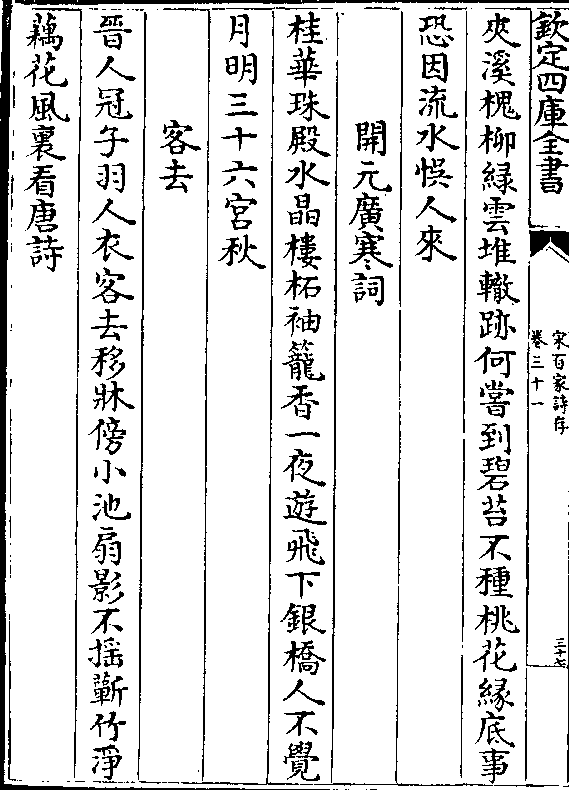 欽定四庫全書
宋百家詩存
卷三十一
三十七
夾溪槐柳緑雲堆轍跡何嘗到碧苔不種桃花縁底事
恐因流水悞人來
開元廣寒詞
桂華珠殿水晶樓柘袖籠香一夜遊飛下銀橋人不覺
月明三十六宮秋
客去
晉人冠子羽人衣客去移牀傍小池扇影不揺蘄竹淨
藕花風裏看唐詩